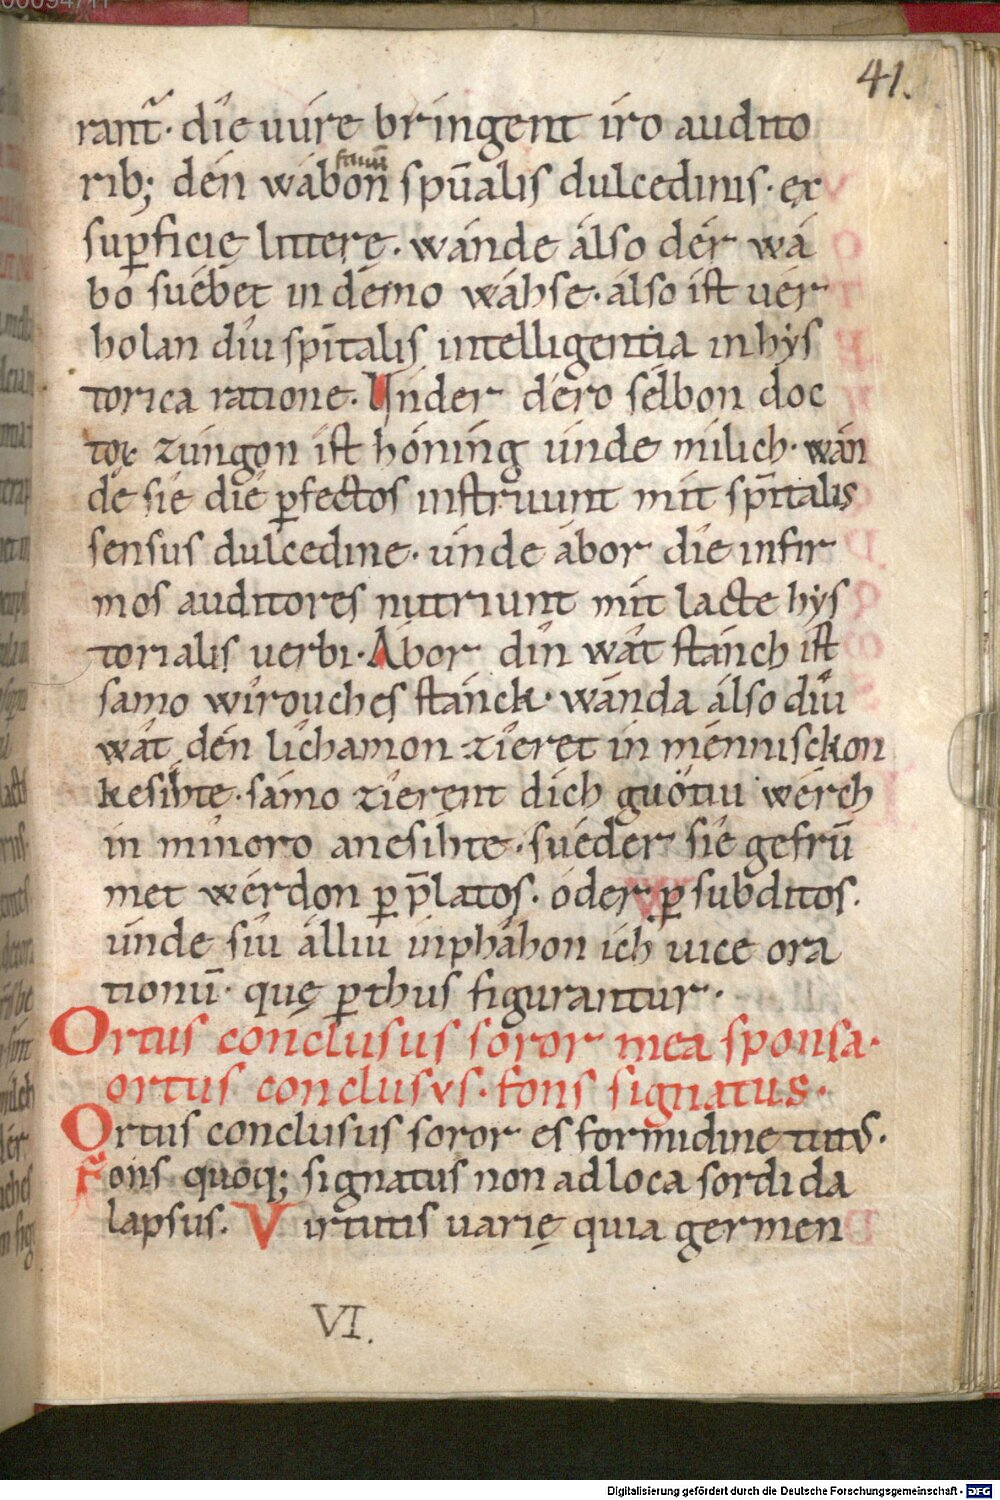 00094717
41.
rant̃· díe uúre bríngent íro audito
favũ
rib; dén wábon spūalis dulcedinis· ex
supficię litterę· wánde álso dér wá
bo suébet in démo wáhse· álso ist uér
holan díu spītalis intelligentia in hýs
torica ratione. Únder déro sélbon doc
tor zúngon ist hónîng únde mílich· wán
de síe díe ꝑfectos instruunt mít spītalis
sensus dulcedine· únde ábor díe infir
mos auditores nutriunt mít lacte hys
torialis uerbi· Ábor dín wát stánch íst
sámo wírouches stánck· wánda álso díu
wát dén líchamon zíeret in ménnisckon
kesíhte· sámo zíerent dích guótiu wérch
in mínoro anesíhte· suéder síe gefrú
met wérdon ꝑ p̄latos· óder ꝑ subditos·
únde síu álliu inpháhon ích uice ora
tionū· quę ꝑ thus figurantur·
Ortus conclusus soror mea sponsa·
ortus conclusvs· fons signatus·
Ortus conclusus soror es formidine tutus·
Fons quoq; signatus non ad loca sordida
lapsus. Virtutis uarię quia germen
VI.
Digitalisierung gefördert durch die Deutsche Forschungsgemeinschaft - DFG